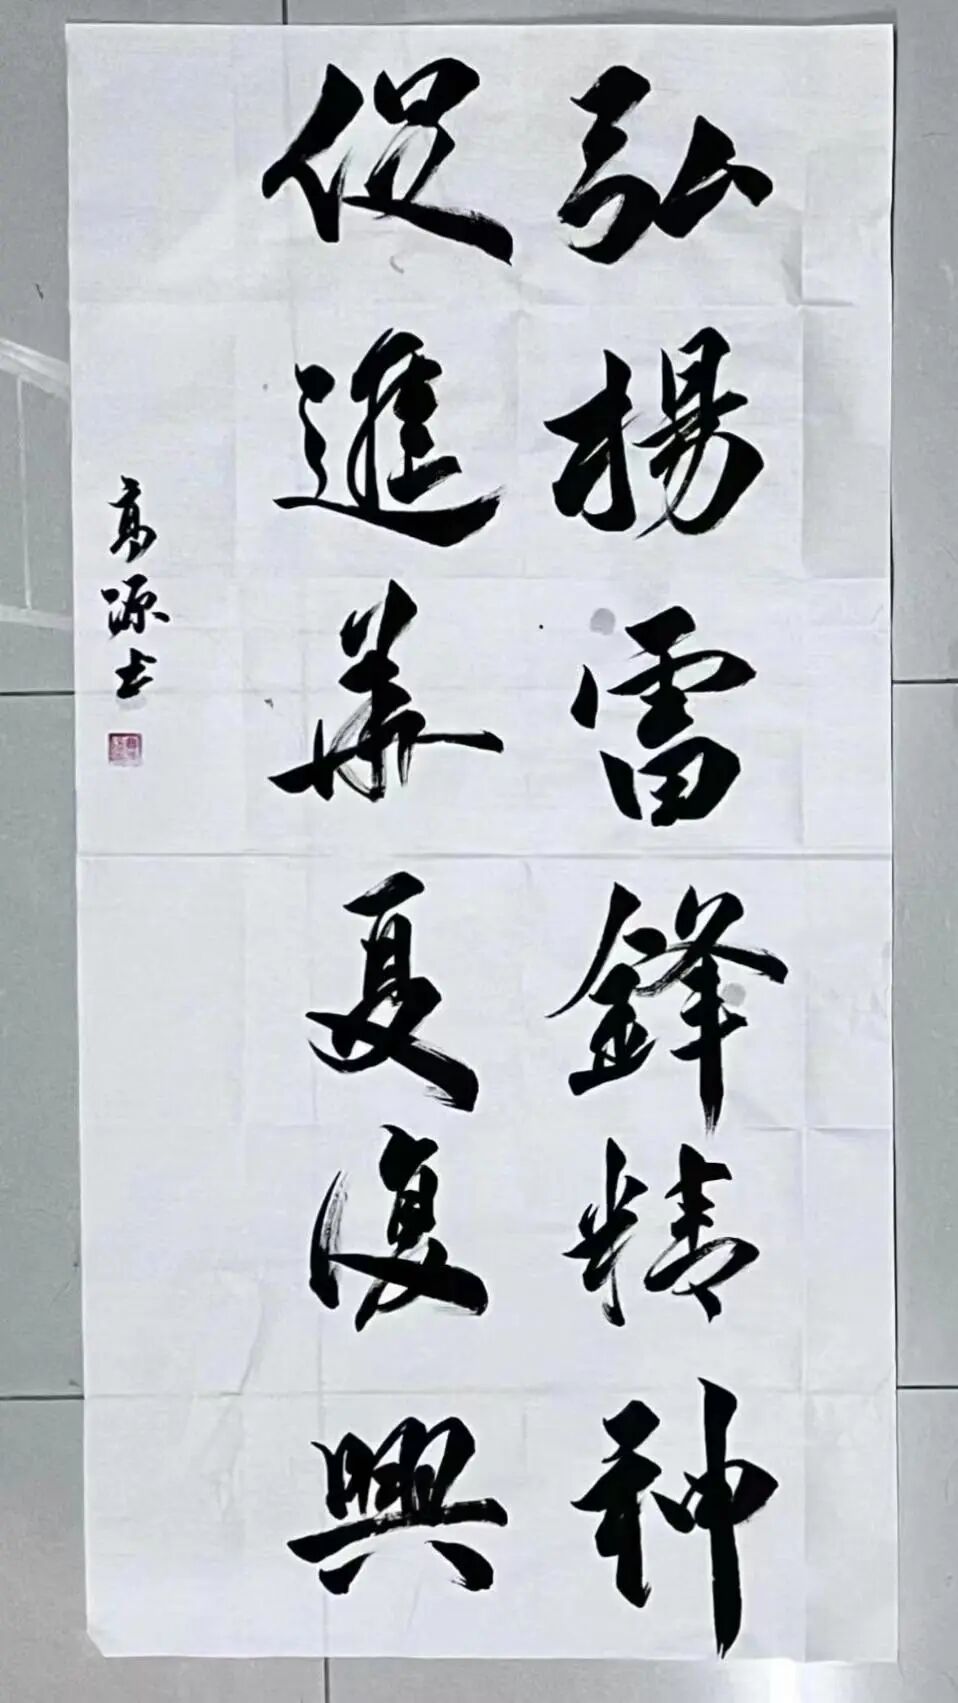 弘揚雷鋒精神
促進華夏復興
高源士